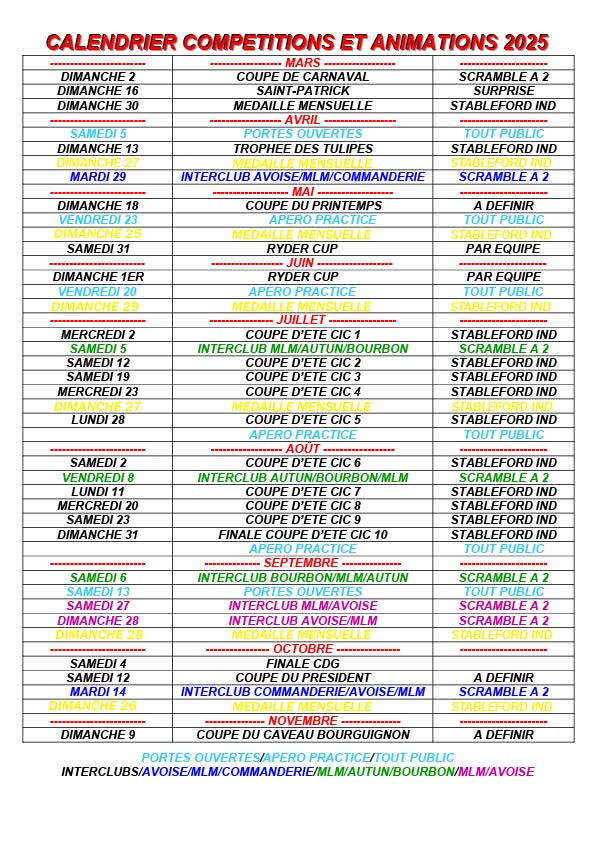 CALENDRIER COMPETITIONS ET ANIMATIONS 2025
---------------------- ----------------- MARS ----------------- --------------------
DIMANCHE 2 COUPE DE CARNAVAL SCRAMBLE A 2
DIMANCHE 16 SAINT-PATRICK SURPRISE
DIMANCHE 30 MEDAILLE MENSUELLE STABLEFORD IND
---------------------- ----------------- AVRIL ----------------- --------------------
SAMEDI 5 PORTES OUVERTES TOUT PUBLIC
DIMANCHE 13 TROPHEE DES TULIPES STABLEFORD IND
DIMANCHE 27 MEDAILLE MENSUELLE STABLEFORD IND
MARDI 29 INTERCLUB AVOISE/MLM/COMMANDERIE SCRAMBLE A 2
---------------------- ------------------ MAI ------------------ --------------------
DIMANCHE 18 COUPE DU PRINTEMPS A DEFINIR
VENDREDI 23 APERO PRACTICE TOUT PUBLIC
DIMANCHE 25 MEDAILLE MENSUELLE STABLEFORD IND
SAMEDI 31 RYDER CUP PAR EQUIPE
---------------------- ----------------- JUIN ------------------ --------------------
DIMANCHE 1ER RYDER CUP PAR EQUIPE
VENDREDI 20 APERO PRACTICE TOUT PUBLIC
DIMANCHE 29 MEDAILLE MENSUELLE STABLEFORD IND
---------------------- --------------- JUILLET ---------------- --------------------
MERCREDI 2 COUPE D'ETE CIC 1 STABLEFORD IND
SAMEDI 5 INTERCLUB MLM/AUTUN/BOURBON SCRAMBLE A 2
SAMEDI 12 COUPE D'ETE CIC 2 STABLEFORD IND
SAMEDI 19 COUPE D'ETE CIC 3 STABLEFORD IND
MERCREDI 23 COUPE D'ETE CIC 4 STABLEFORD IND
DIMANCHE 27 MEDAILLE MENSUELLE STABLEFORD IND
LUNDI 28 COUPE D'ETE CIC 5 STABLEFORD IND
APERO PRACTICE TOUT PUBLIC
---------------------- ----------------- AOÛT ----------------- --------------------
SAMEDI 2 COUPE D'ETE CIC 6 STABLEFORD IND
VENDREDI 8 INTERCLUB AUTUN/BOURBON/MLM SCRAMBLE A 2
LUNDI 11 COUPE D'ETE CIC 7 STABLEFORD IND
MERCREDI 20 COUPE D'ETE CIC 8 STABLEFORD IND
SAMEDI 23 COUPE D'ETE CIC 9 STABLEFORD IND
DIMANCHE 31 FINALE COUPE D'ETE CIC 10 STABLEFORD IND
APERO PRACTICE TOUT PUBLIC
---------------------- ------------- SEPTEMBRE -------------- --------------------
SAMEDI 6 INTERCLUB BOURBON/MLM/AUTUN SCRAMBLE A 2
SAMEDI 13 PORTES OUVERTES TOUT PUBLIC
SAMEDI 27 INTERCLUB MLM/AVOISE SCRAMBLE A 2
DIMANCHE 28 INTERCLUB AVOISE/MLM SCRAMBLE A 2
DIMANCHE 28 MEDAILLE MENSUELLE STABLEFORD IND
---------------------- --------------- OCTOBRE --------------- --------------------
SAMEDI 4 FINALE CDG
SAMEDI 12 COUPE DU PRESIDENT A DEFINIR
MARDI 14 INTERCLUB COMMANDERIE/AVOISE/MLM SCRAMBLE A 2
DIMANCHE 26 MEDAILLE MENSUELLE STABLEFORD IND
---------------------- -------------- NOVEMBRE -------------- --------------------
DIMANCHE 9 COUPE DU CAVEAU BOURGUIGNON A DEFINIR
PORTES OUVERTES/APERO PRACTICE/TOUT PUBLIC
INTERCLUBS/AVOISE/MLM/COMMANDERIE/MLM/AUTUN/BOURBON/MLM/AVOISE